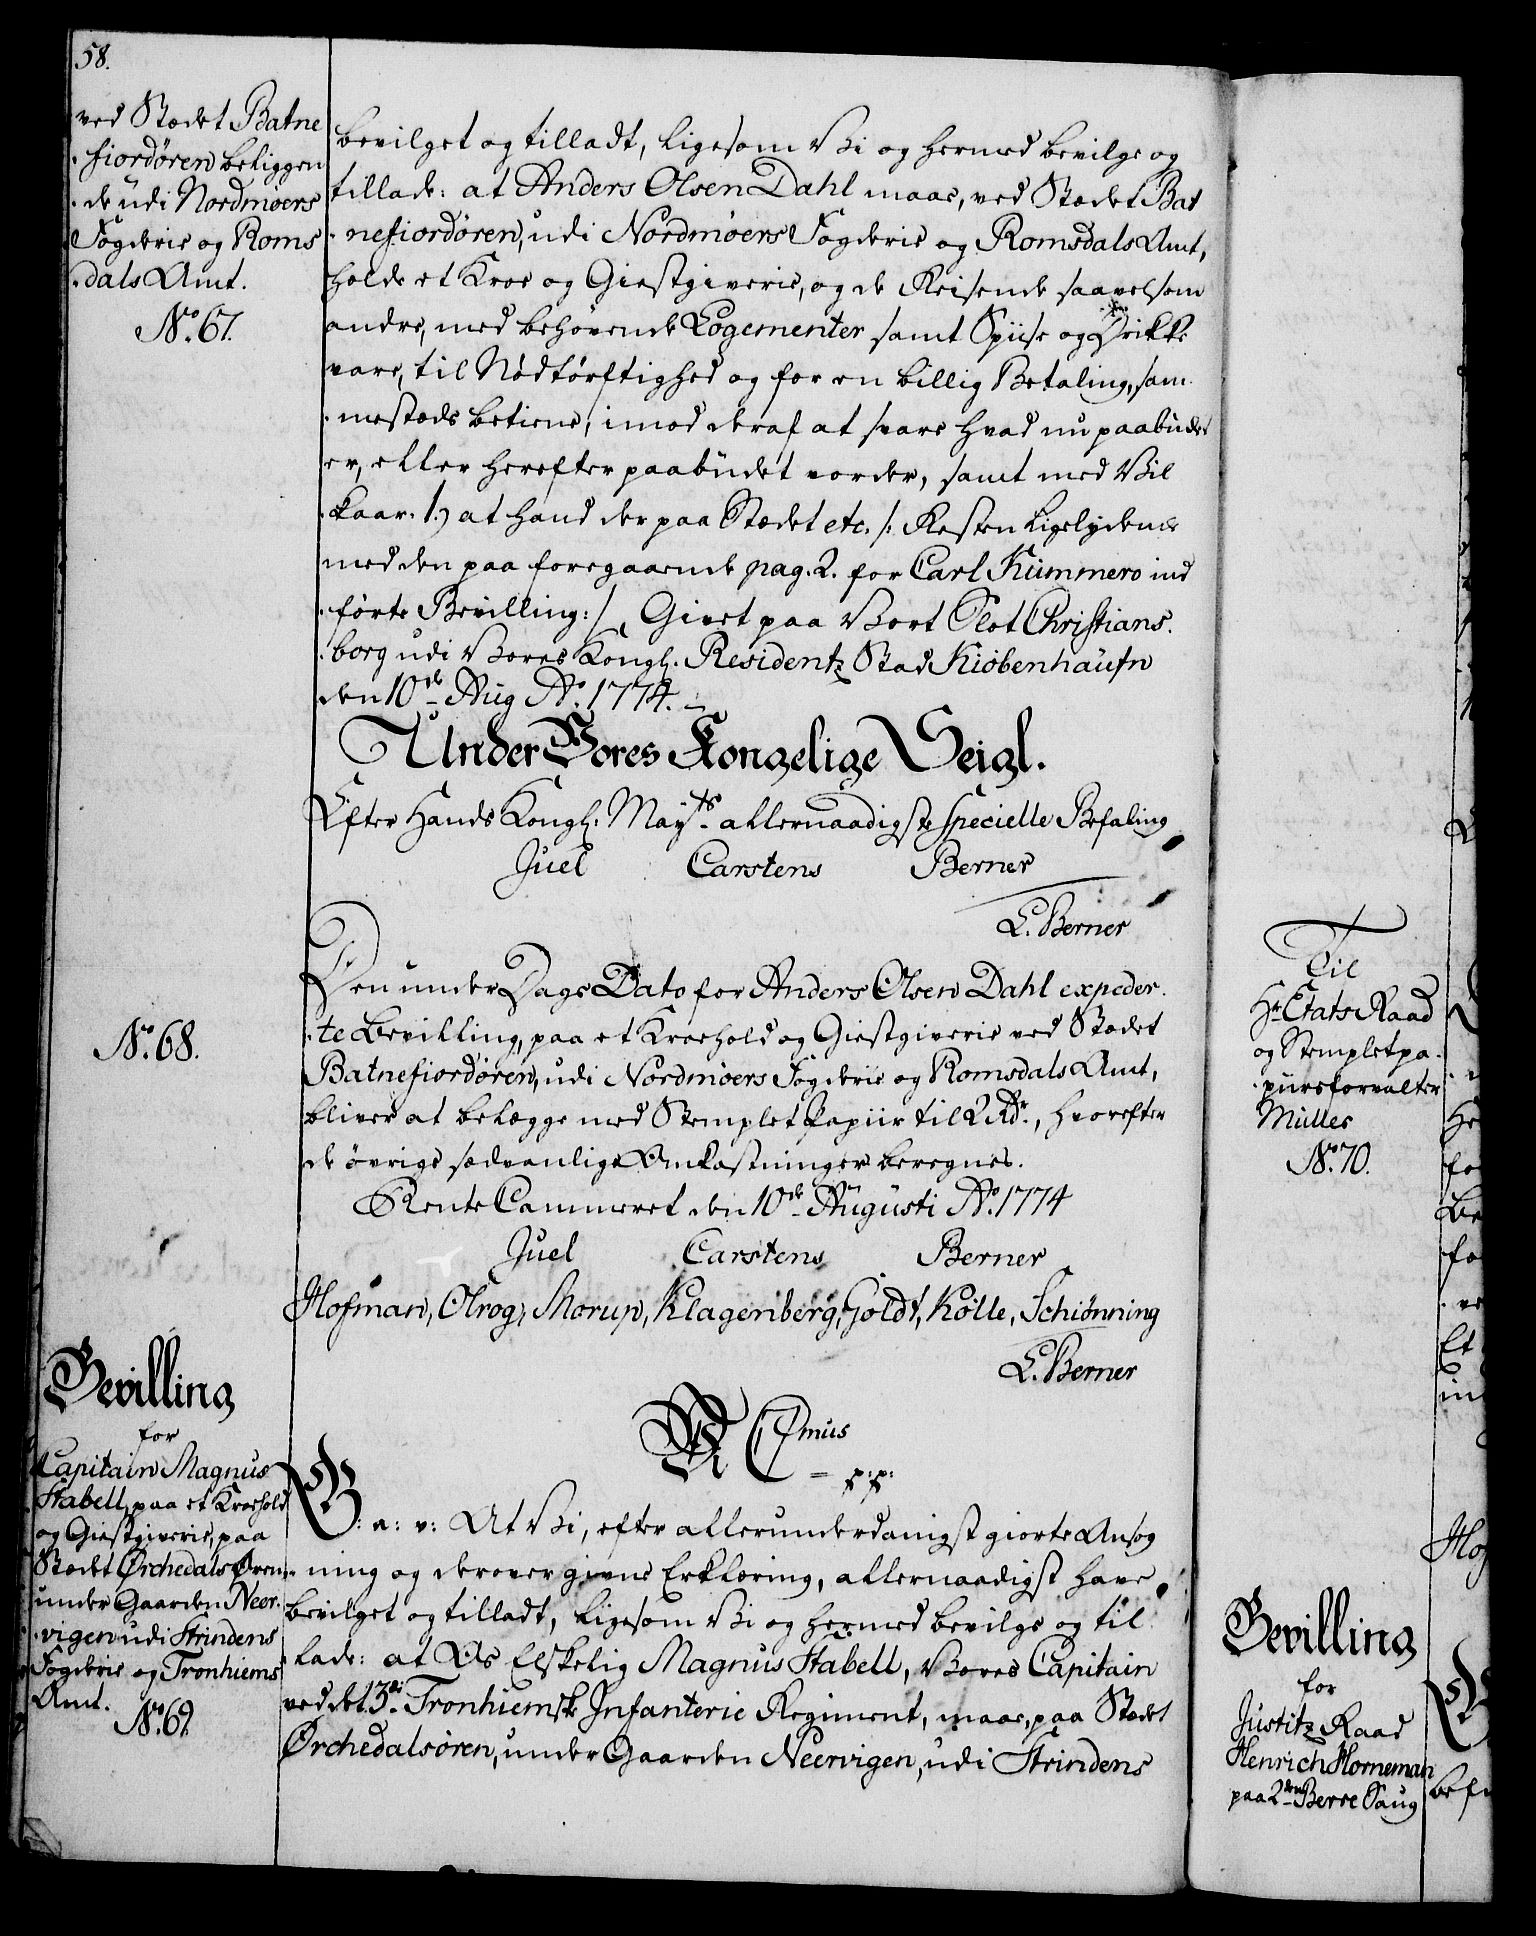 58.
ved Stædet Batne
fiordøren beliggen
de udi Nordmøers
Fogderie og Roms
dals Amt.
No. 67.
bevilget og tilladt, ligesom Vi og hermed bevilge og
tillade: at Anders Olsen Dahl maae, ved Stædet Bat
nefiordøren, udi Nordmøers Fogderie og Romsdals Amt,
holde et Kroe og Giestgiverie, og de Reisende saavelsom
andre, med behøvende Logementer samt Spiise og Drikke
vare, til Nødtørftighed og for en billig Betaling, sam
mestæds betiene, imod deraf at svare hvad nu paabudet
er, eller herefter paabudet vorder, samt med Vil
kaar. 1.) at hand der paa Stædet etc. /: Resten ligelydende
med den paa foregaaende pag. 2. for Carl Kummero ind
førte Bevilling :/ Givet paa Vort Slot Christians
borg udi Vores Kongl. Residentz Stad Kiøbenhaufn
den 10de Aug Ao. 1774.
Under Vores Kongelige Seigl.
Efter Hands Kongl. Mayts allernaadigste specielle Befaling
Juel Carstens Berner
L. Berner
No. 68.
Den under Dags Dato for Anders Olsen Dahl expeder
te Bevilling, paa et Kroehold og Giestgiverie ved Stædet
Batnefiordøren, udi Nordmøers Fogderie og Romsdals Amt,
bliver at belægge med Stemplet Papiir til 2 Rdr., hvorefter
de øvrige sædvanlige Omkostninger beregnes.
Rente Cammeret den 10de Augusti Ao. 1774
Juel Carstens Berner
Hofman, Olrog, Morup, Klagenberg, Goldt, Kølle, Schiønning
L. Berner
Bevilling
for
Capitain Magnus
Stabell, paa et Kroehold
og Giestgiverie, paa
Stædet Ørchedalsøren
under Gaarden Neer
vigen udi Strindens
Fogderie og Tronhiems
Amt.
No. 69.
C 7mus
p:p:
G: a: v: At Vi, efter allerunderdanigst giorte Ansøg
ning og derover givne Erklæring, allernaadigst have
bevilget og tilladt, ligesom Vi og hermed bevilge og til
lade: at Os Elskelig Magnus Stabell, Vores Capitain
ved det 3die Tronhiemske Infanterie Regiment, maae, paa Stædet
Ørchedalsøren, under Gaarden Neervigen, udi Strindens
Til
Hr. Etats Raad
og Stempletpa
piirsforvalter
Müller
No. 70.
Bevilling
for
Justitz Raad
Henrich Horneman
paa 2den Berre Saug